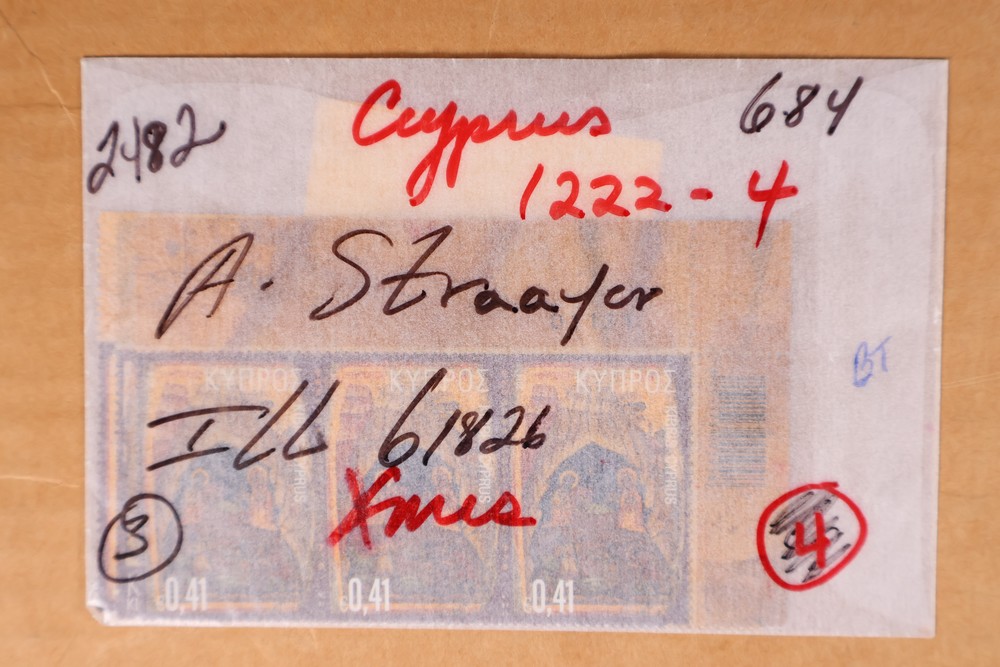 2482
Cyprus
684
1222-4
A. Straayer
BT
ΚΥΠΡΟΣ ΚΥΠΡΟΣ ΚΥΠΡΟΣ
Ill 61826
Xmas
3
4
0,41 0,41 0,41